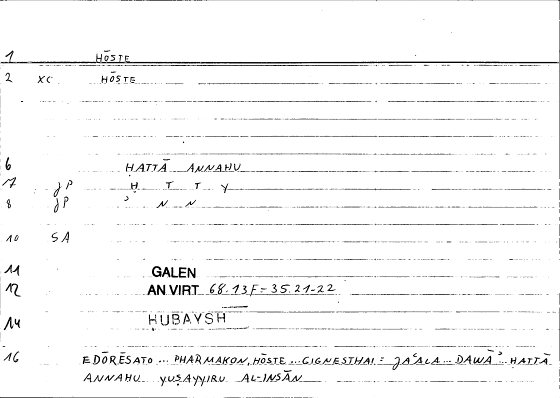 1 HŌSTE
2 XC HŌSTE
6 ḤATTĀ ANNAHU
7 JP Ḥ T T Y
8 JP ʾ N N
10 SA
11 GALEN
12 AN VIRT 68.13F = 35.21-22
14 ḤUBAYSH
16 EDŌRĒSATO ... PHARMAKON, HŌSTE ... GIGNESTHAI : JAʿALA ... DAWĀʾ ḤATTĀ
ANNAHU YUṢAYYIRU AL-INSĀN